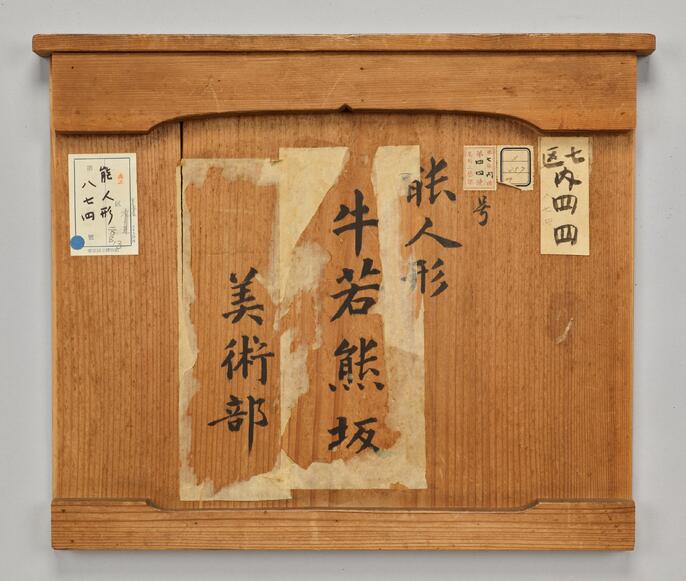 七
区内四四
能人形
号
牛若熊坂
美術部
能人形
第八七四號